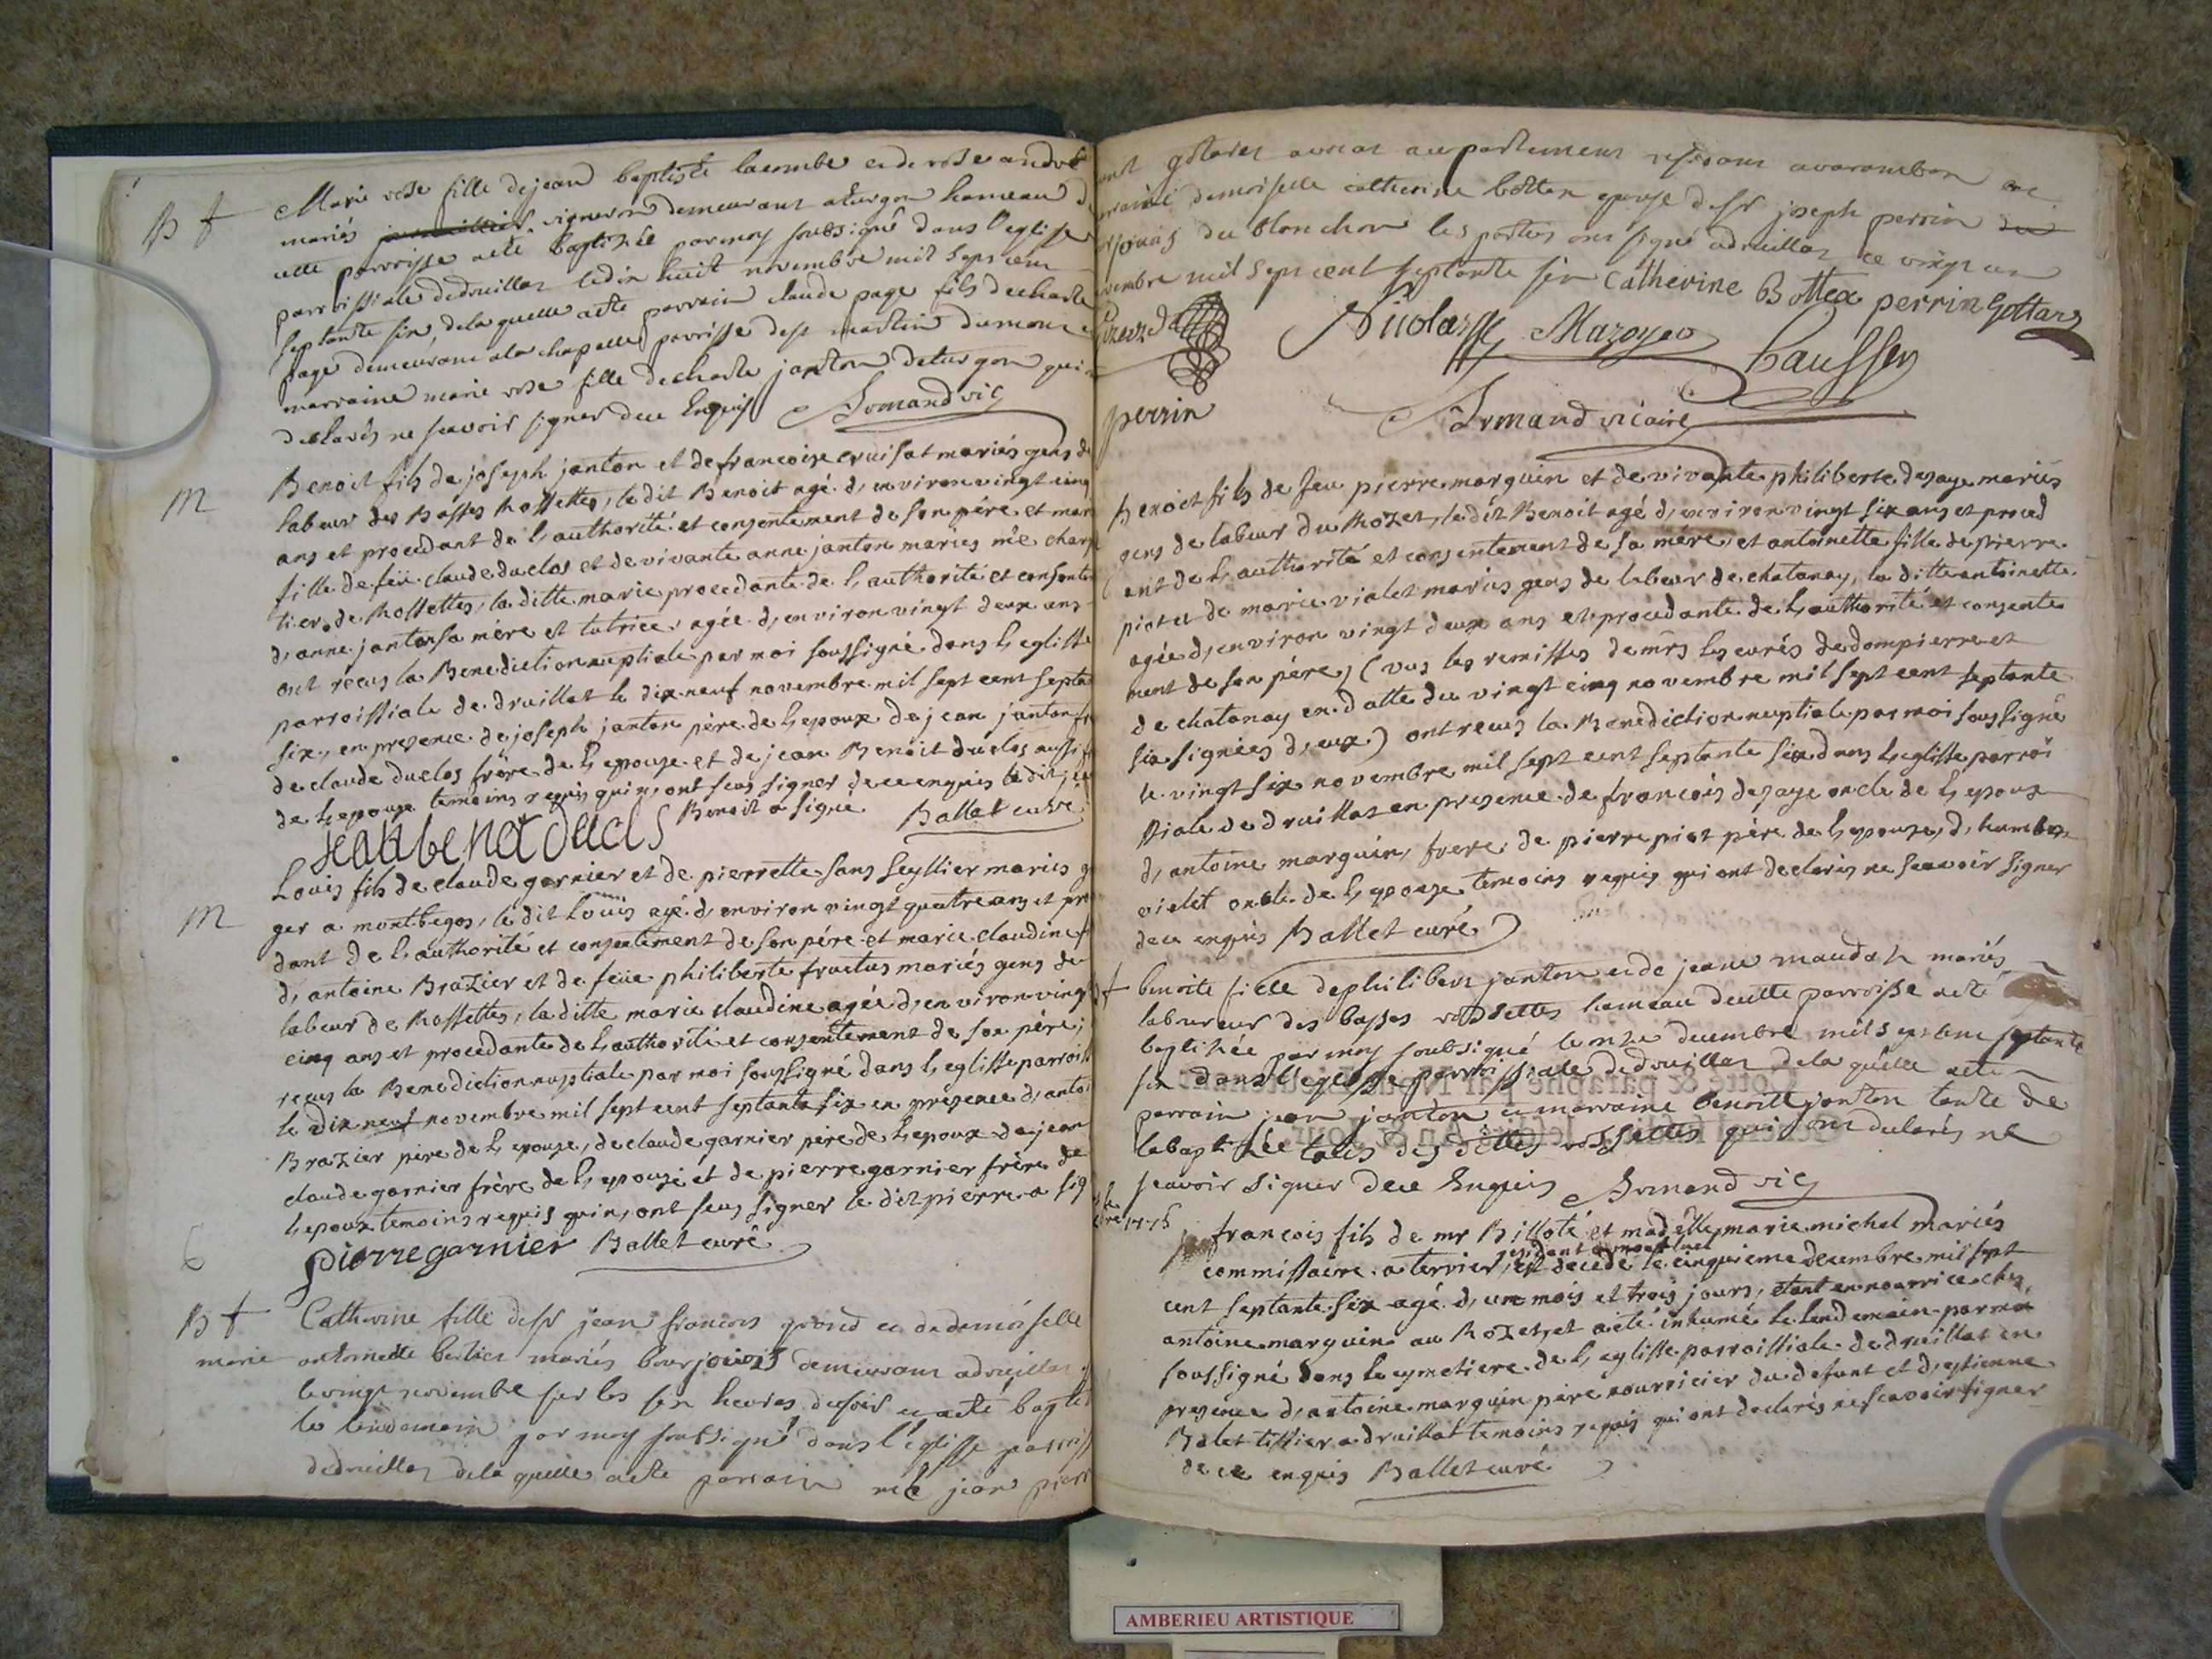 B f
Marie rose fille de jean baptiste lacombe et de rose andre
mariés vigneron demeurant a turgon hameau d
cette parroisse a eté baptisée par moy soubsigné dans l'eglise
parroissiale de druillat le dix huit novembre mil sept cent
septante six, de la quelle a eté parrain claude page fils de charle
page demeurant a la chapelle parroisse de st martin dumont
marraine marie rose fille de charle janton de turgon qui
declarés ne scavoir signer de ce Enquis Armand vic
M
Benoit fils de joseph janton et de francoise cruisat mariés gens de
labeur des Basses Rossettes, le dit Benoit agé d, environ vingt cinq
ans et procedant de l, authorité et consentement de son pére et mari
fille de feü claude duclos et de vivante anne janton mariés me charp
tier de Rossettes, la ditte marie procedante de l, authorité et consente
d, anne janton sa mére et tutrice, agée d, environ vingt deux ans
ont reçus la Benediction nuptiale par moi soussigné dans l, eglisse
parroissiale de druillat le dix neuf novembre mil sept cent septa
six, en presence de joseph janton pére de l, epoux de jean janton fr
de claude duclos frére de l, epouse et de jean Benoit duclos aussi f
de l, epouse temoins requis qui n, ont scus signer de ce enquis le dit je
Benoit a signé Ballet curé
jean benoit ducls
M
Louis fils de claude garnier et de pierrette sans seyllier mariés g
ger a montbegos, le dit Louis agé d, environ vingt quatre ans et pro
dant de l, authorité et consentement de son pére et marie claudine f
d, antoine Brazier et de feüe philiberte fructus mariés gens de
labeur de Rossettes, la ditte marie claudine agée d, environ vingt
cinq ans et procedante de l, authorité et consentement de son pére;
reçus la Benediction nuptiale par moi soussigné dans l, eglisse parroiss
le dix neuf novembre mil sept cent septante six en presence d, antoi
Brazier pére de l, epouse, de claude garnier pére de l, epoux de jean
claude garnier frére de l, epouse et de pierre garnier frére de
l, epoux temoins requis qui n, ont scus signer le dit pierre a sig
6
pierre garnier Ballet curé
B f
marie
Catherine fille de sr jean francois grand et de demoiselle
antoinette bertier mariés bourjouois demeurant a druillat
le vingt novembre sur les six heures du soir et a eté bapti
le lendemain par moy soubsigné dans l'eglise parroiss
de druillat de la quelle a eté parrain me jean pierr
ent gottares avocat au parlement residant a varambon et
marraine demoiselle catherine bottex epouse de sr joseph perrin
bourjouais du blanchon les parties ont signé a druillat ce vingt un
vembre mil sept cent septante six Catherine Bottex perrin Gottare
Nicolasse Mazoyer
Caussen
perrin
Armand vicaire
Benoit fils de feu pierre marguin et de vivante philiberte desaye mariés
gens de labeur du Rozet, le dit Benoit agé d, environ vingt six ans et proced
ant de l, authorité et consentement de sa mére, et antoinette fille de pierre
piot et de marie violet mariés gens de labeur de chatenay, la ditte antoinette
agée d, environ vingt deux ans et procedante de l, authorité et consente
ment de son pére, (vus les remisses de mrs les curés de dompierre et
de chatenay en datte du vingt cinq novembre mil sept cent septante
six signées d, eux) ont reçus la Benediction nuptiale par moi soussigné
le vingt six novembre mil sept cent septante six dans l, eglisse parroi
ssiale de druillat en presence de francois desaye oncle de l, epoux
d, antoine marguin, frere, de pierre piot pére de l, epouse, d, humber
violet oncle de l, epouse temoins requis qui ont declarés ne scavoir signer
de ce enquis Ballet curé
f
benoite fille de philibert janton et de jeane maudah mariés
laboureur des basses rossettes hameau de cette parroisse a eté
baptisée par moy soubsigné le onze decembre mil sept cent septante
six dans l'eglisse parroissiale de druillat de la quelle a eté
parrain jean janton et marraine benoite janton tante de
la baptisée tous des dittes rossettes qui ont declarés ne
scavoir signer de ce Enquis Armand vic
francois fils de mr Billoté et madelle marie michel mariés
residant a montluel
commissaire a terrier, est decedé le cinquieme decembre mil sept
cent septante six agé d, un mois et trois jours, etant en nourrice chez
antoine marguin au Rozet, et a eté inhumé le lendemain par moi
soussigné dans le cymetiere de l, eglisse parroissiale de druillat en
presence d, antoine marguin pére nourricier du defunt et d, estienne
Balet tissier a druillat temoins requis qui ont declarés ne scavoir signer
de ce enquis Ballet curé
AMBERIEU ARTISTIQUE